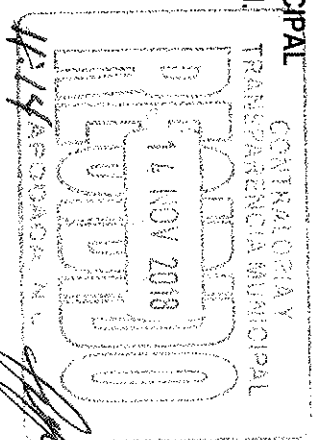 CIPAL
CONTRALORIA Y
TRANSPARENCIA MUNICIPAL
RECIBIDO
14 NOV 2018
APODACA, N. L.
11:14